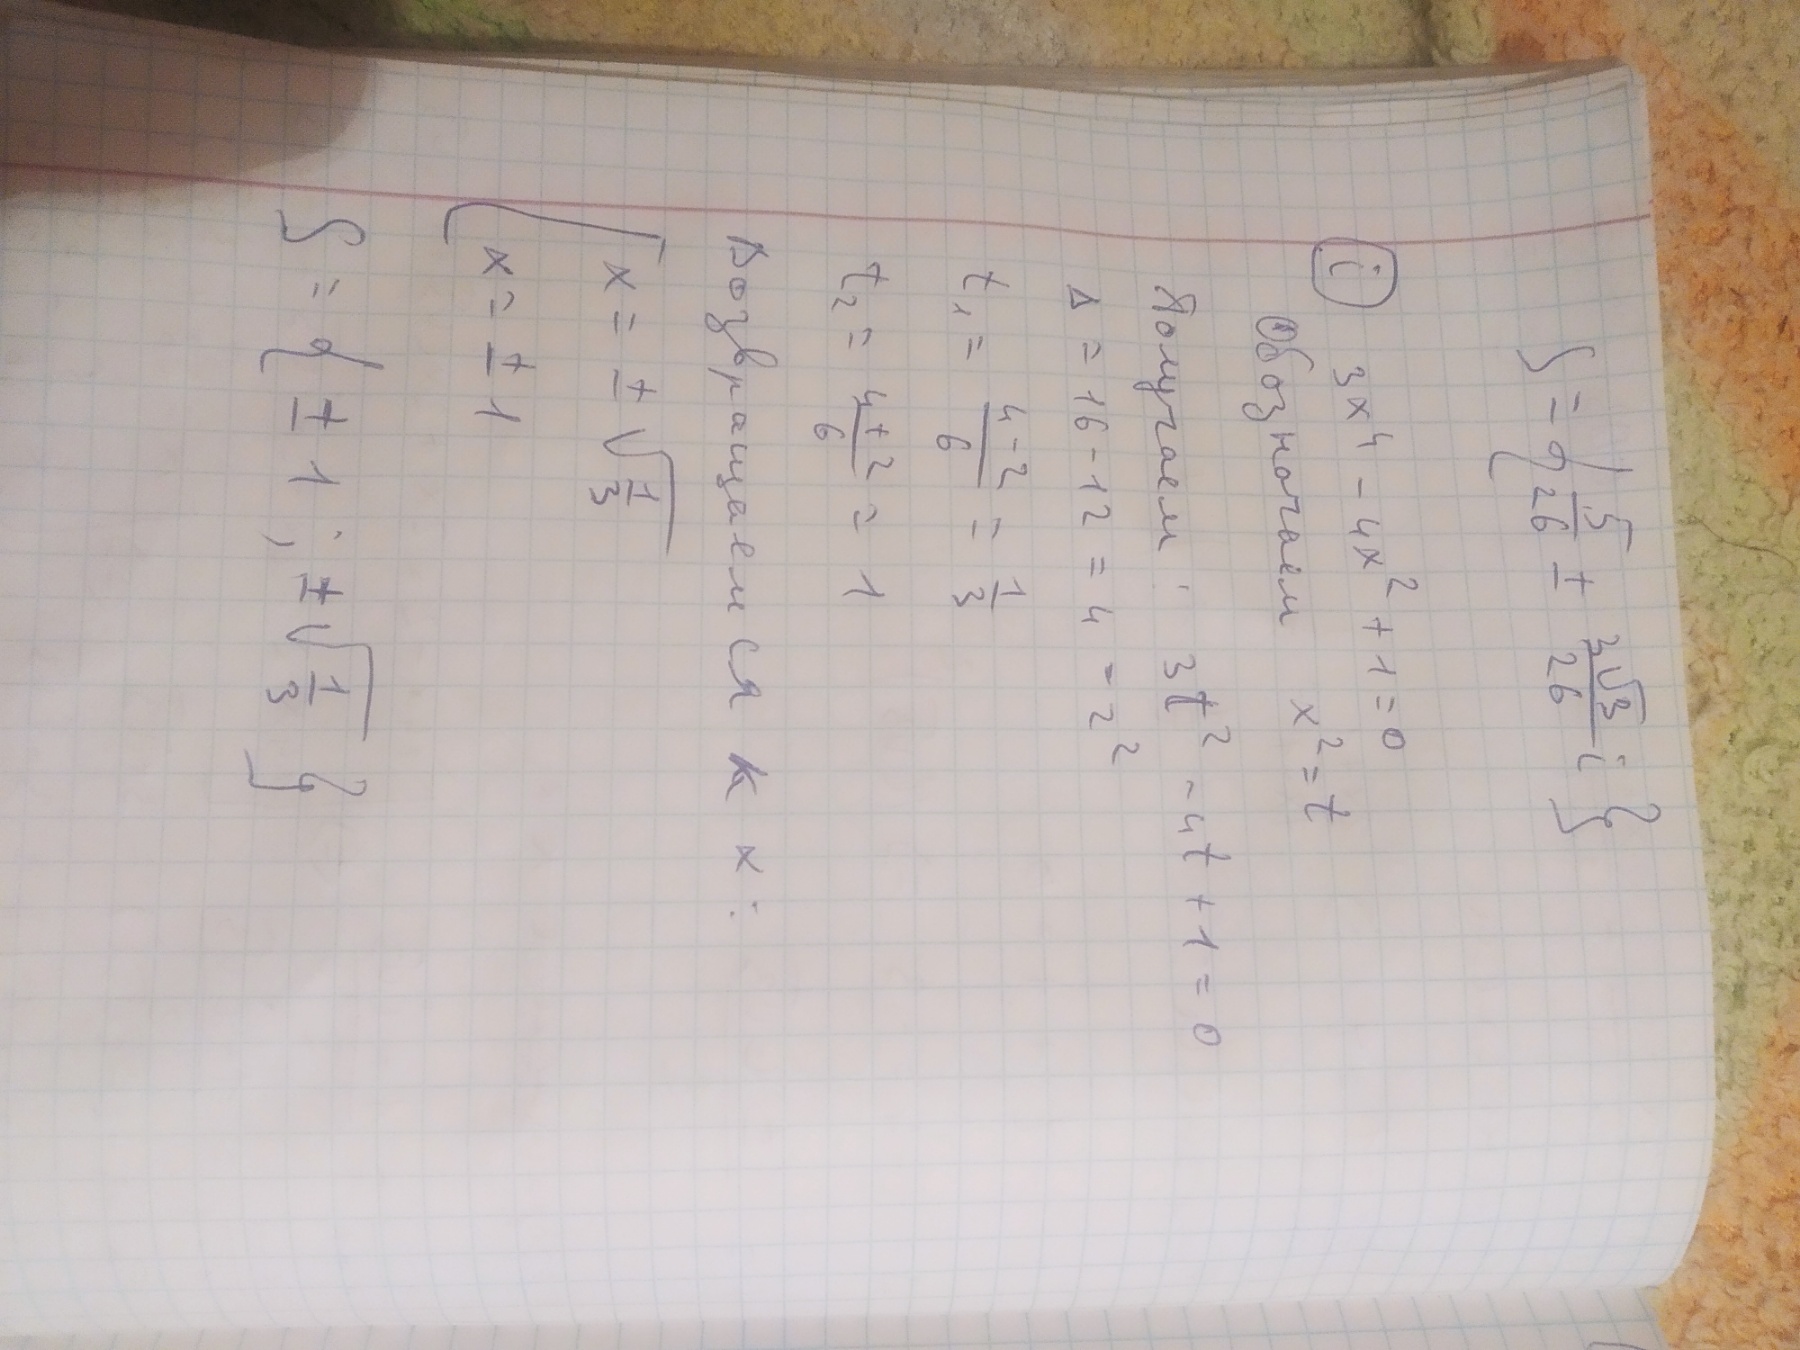 S = { 5/26 ± 3√3/26 i }
i 3x⁴ - 4x² + 1 = 0
Обозначаем x² = t
Получаем: 3t² - 4t + 1 = 0
Δ = 16 - 12 = 4 = 2²
t₁ = (4-2)/6 = 1/3
t₂ = (4+2)/6 = 1
Возвращаемся к x:
[ x = ± √(1/3)
x = ± 1
S = { ± 1 ; ± √(1/3) }